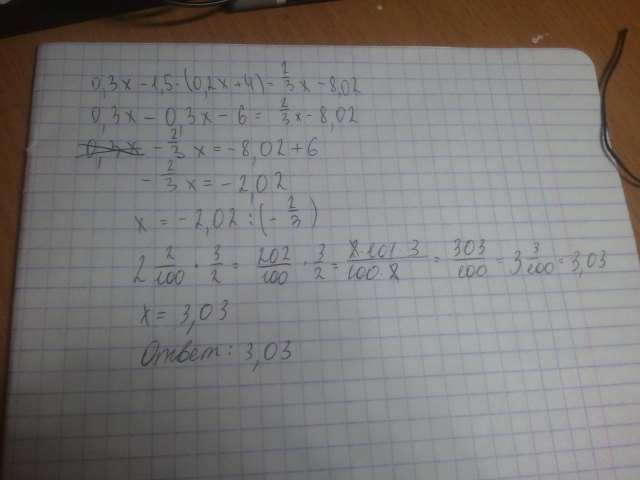 0,3x - 1,5·(0,2x+4) = 2/3 x - 8,02
0,3x - 0,3x - 6 = 2/3 x - 8,02
- 2/3 x = -8,02 + 6
- 2/3 x = -2,02
x = -2,02 : (- 2/3)
2 2/100 · 3/2 = 202/100 · 3/2 = 2·101·3/100·2 = 303/100 = 3 3/100 = 3,03
x = 3,03
Ответ: 3,03